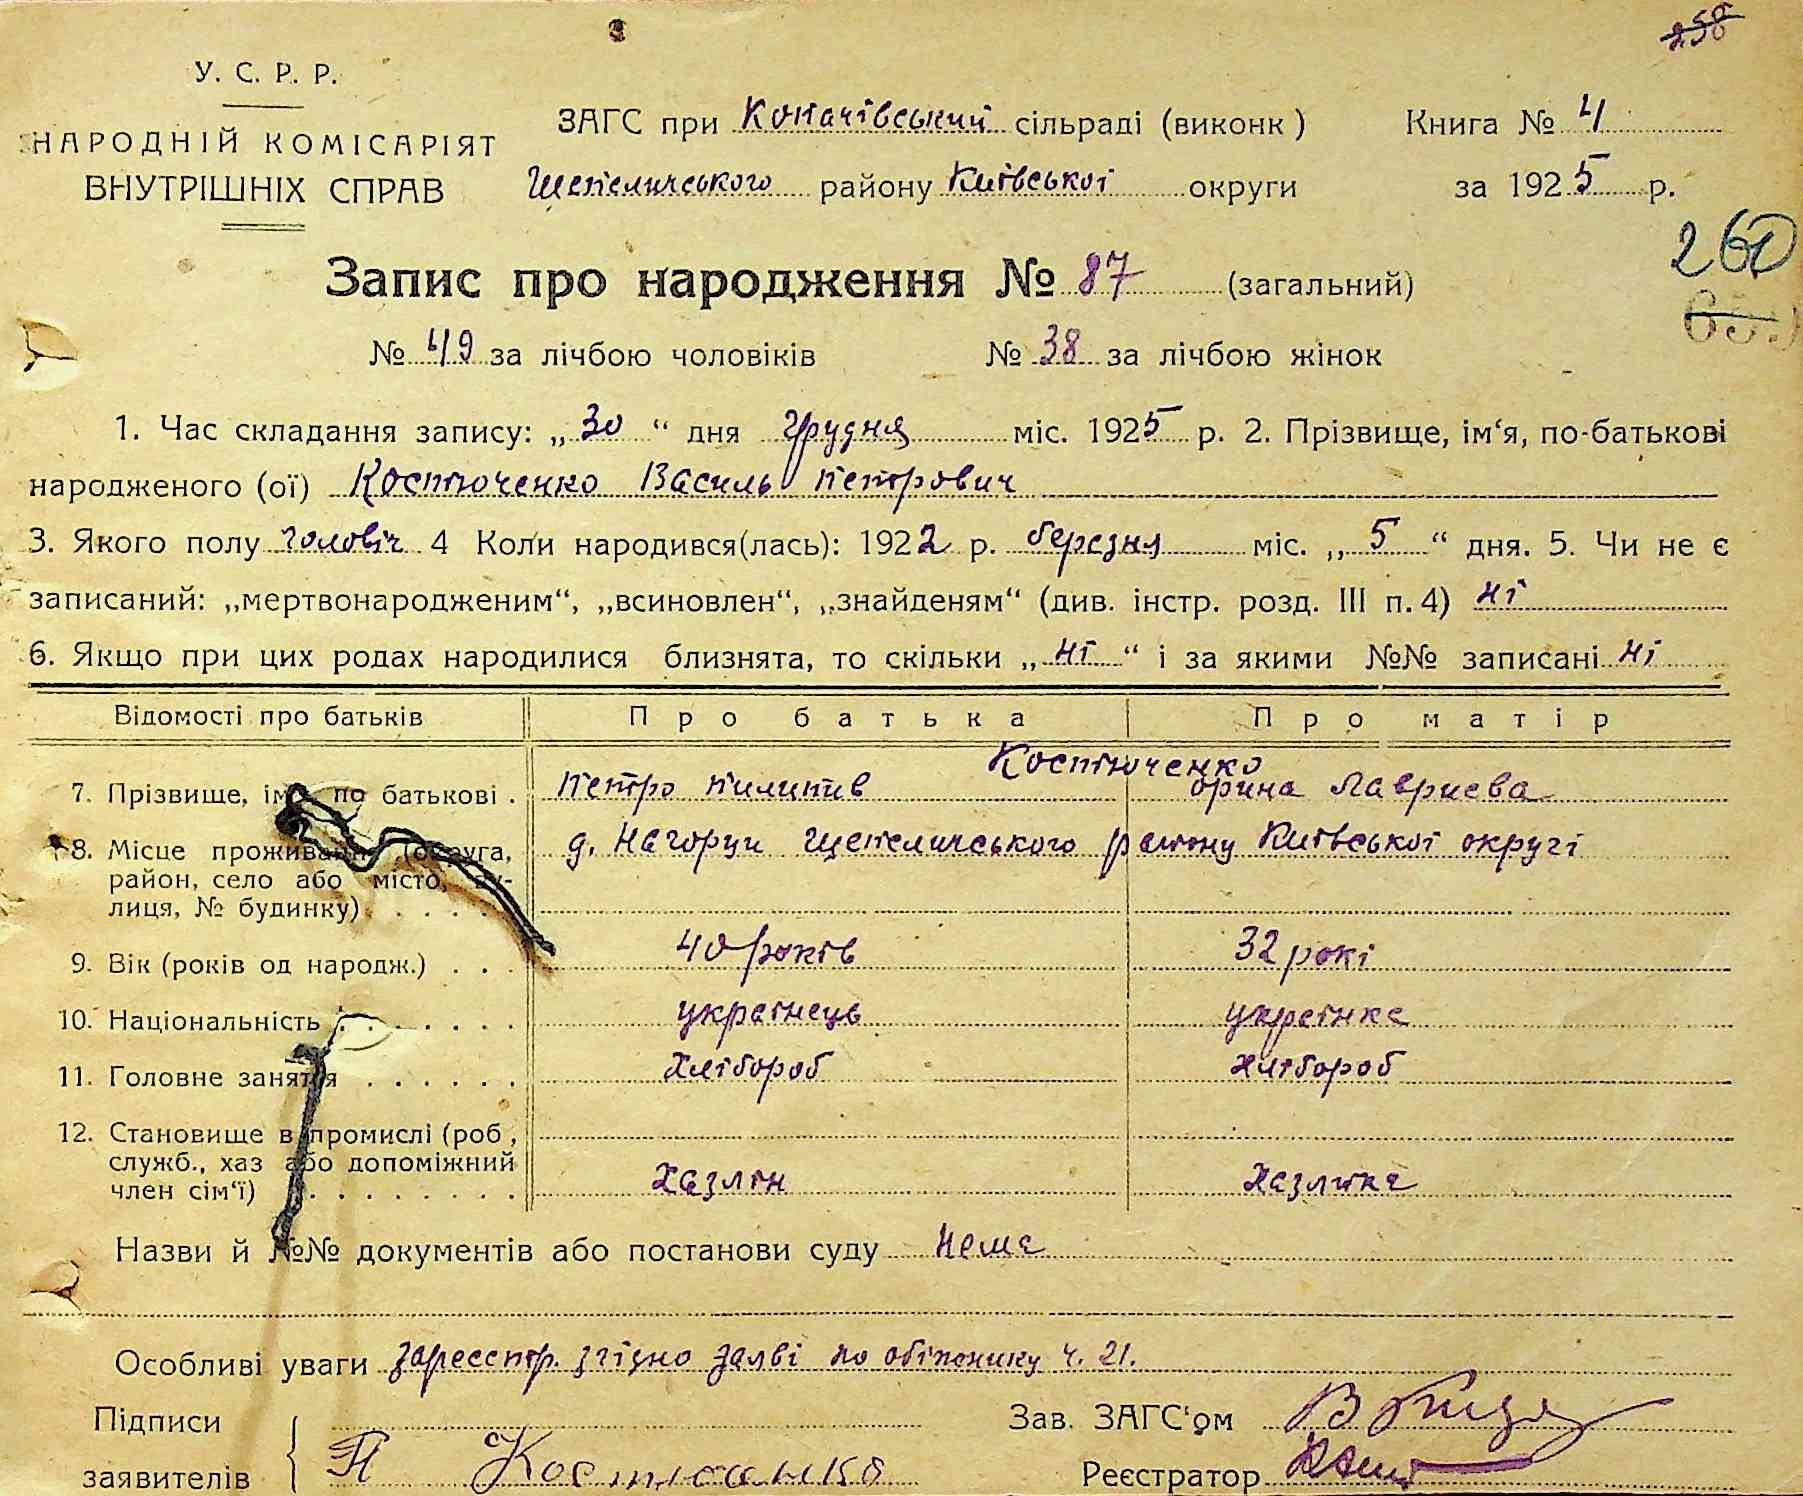 258
У. С. Р. Р.
НАРОДНІЙ КОМІСАРІЯТ
ВНУТРІШНІХ СПРАВ
ЗАГС при Копачівський сільраді (виконк)
Книга № 4
Шепелического району Київської округи
за 1925 р.
260
Запис про народження № 87 (загальний)
№ 49 за лічбою чоловіків № 38 за лічбою жінок
1. Час складання запису: „30“ дня грудня міс. 1925 р. 2. Прізвище, ім‘я, по-батькові
народженого (ої) Костюченко Василь Петрович
3. Якого полу чоловіч 4 Коли народився(лась): 1922 р. березня міс. „5“ дня. 5. Чи не є
записаний: „мертвонародженим“, „всиновлен“, „знайденям“ (див. інстр. розд. III п. 4) ні
6. Якщо при цих родах народилися близнята, то скільки „ні“ і за якими №№ записані ні
Відомості про батьків Про батька Про матір
Костюченко
7. Прізвище, ім‘я по батькові . Петро Пилипів Орина Лавриєва
8. Місце проживання (округа, д. Нагорци Шепеличського району Київської округі
район, село або місто, ву-
лиця, № будинку) . . . . .
9. Вік (років од народж.) . . . 40 років 32 рокі
10. Національність . . . . . . . українець українка
11. Головне заняття . . . . . . хлібороб хлібороб
12. Становище в промислі (роб,
служб., хаз або допоміжний
член сім‘ї) . . . . . . . . . хазяін хазяйка
Назви й №№ документів або постанови суду нема
Особливі уваги зареєстр. згідно заяві по обіжнику ч. 21.
Підписи
заявителів П Костюченко
Зав. ЗАГС‘ом
Реєстратор